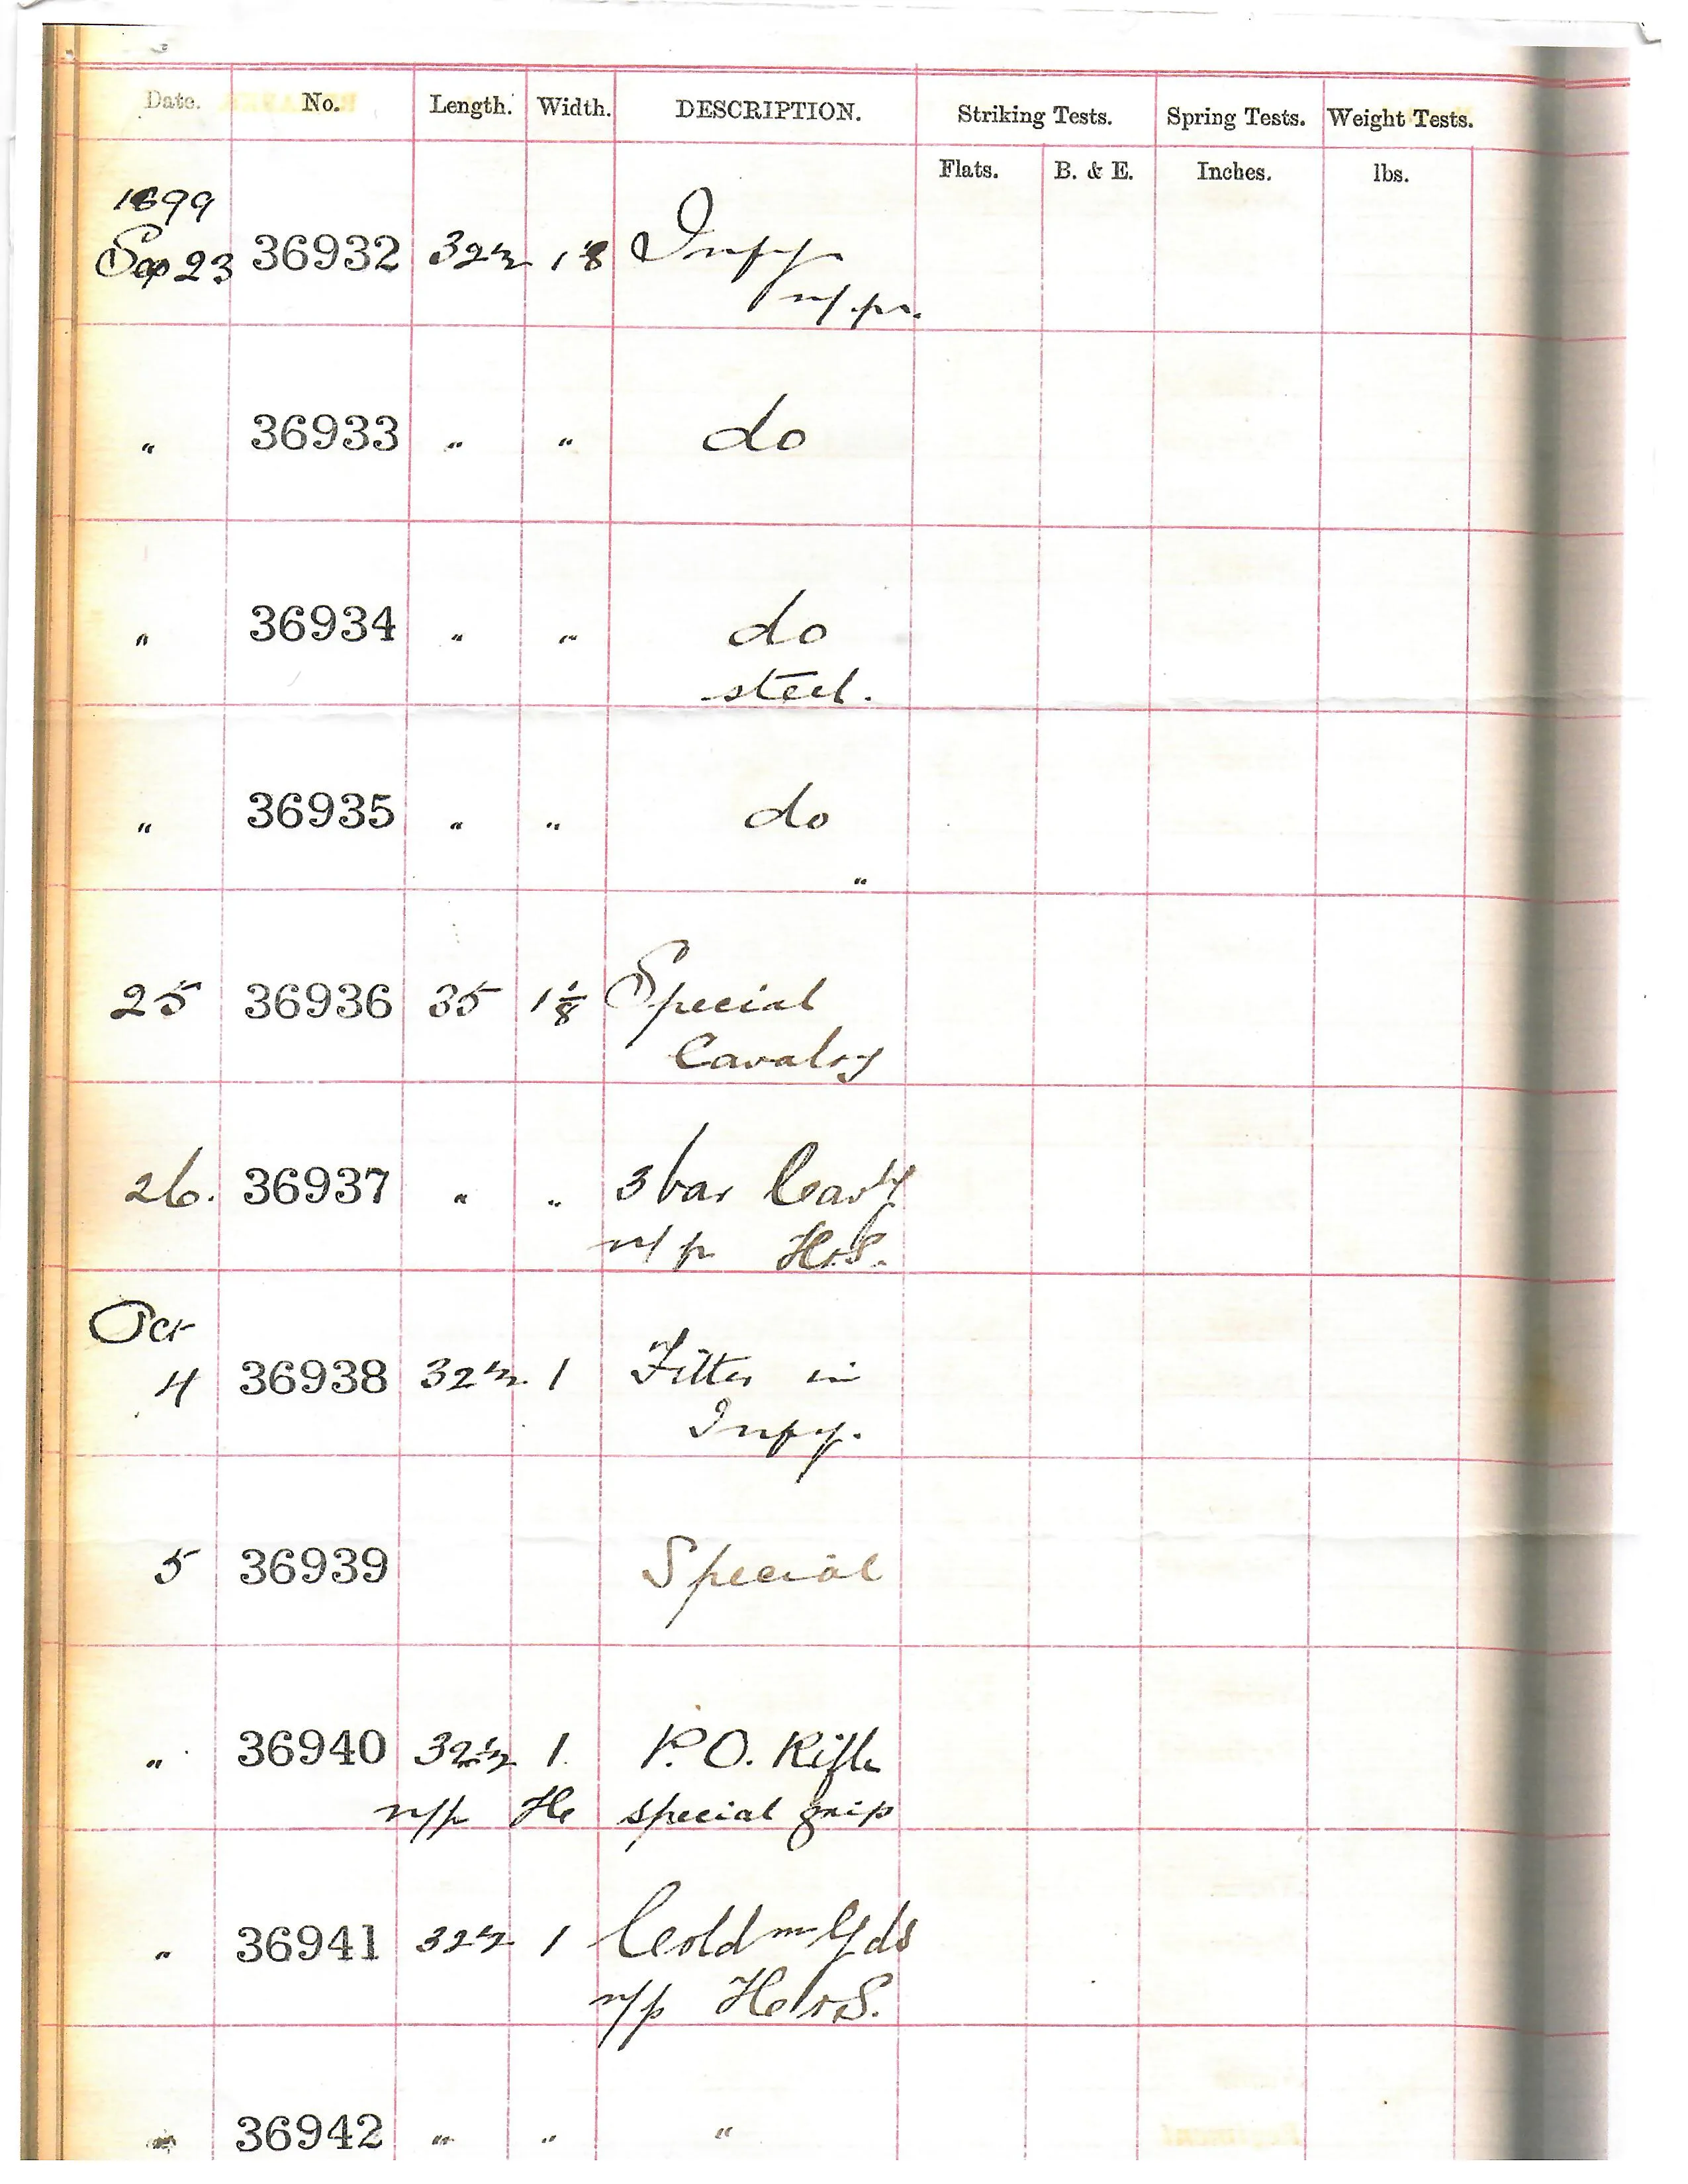 Date. No. Length. Width. DESCRIPTION. Striking Tests. Spring Tests. Weight Tests.
Flats. B. & E. Inches. lbs.
1899
Sep 23 36932 32½ 1⅛ Infy
n/pr.
" 36933 " " do
" 36934 " " do
steel.
" 36935 " " do
"
25 36936 35 1⅛ Special
Cavalry
26. 36937 " " 3 bar Cavly
n/p H&S.
Oct
4 36938 32½ 1 Fitter in
Infy.
5 36939 Special
" 36940 32½ 1. P.O. Rifle
n/p He special grip
" 36941 32½ 1 Coldm Gds
n/p H&S.
" 36942 " " "